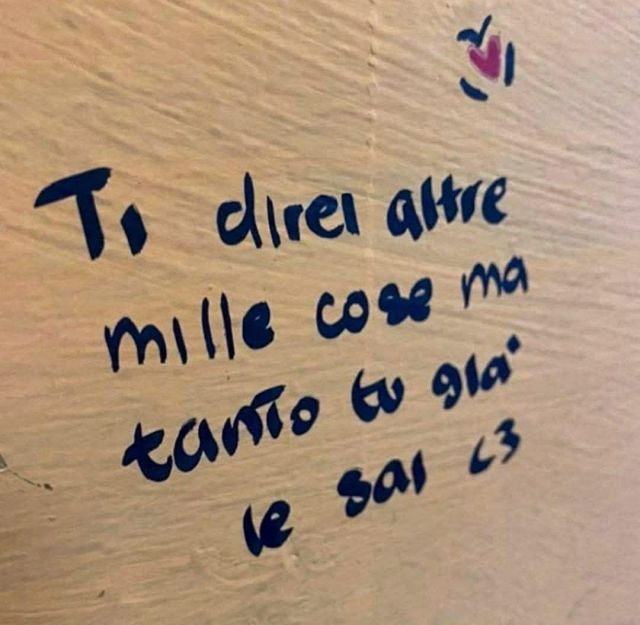 Ti direi altre
mille cose ma
tanto tu già
le sai <3